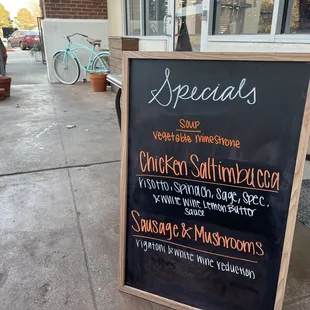 Specials
SOUP
vegetable minestrone
Chicken Saltimbucca
risotto, spinach, sage, spec,
& white wine Lemon Butter
Sauce
Sausage & Mushrooms
rigatoni & white wine reduction